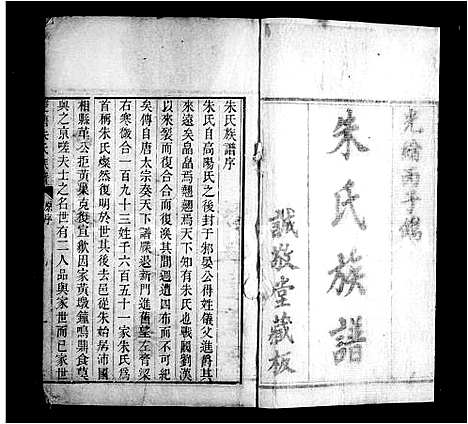 光緒丙子鐫
朱氏族譜
誠敬堂藏板
朱氏族譜序
朱氏自高陽氏之後封于邾晏公得姓儀父進爵其
來遠矣晶晶焉翹翹焉天下知有朱氏也戰劉漢
以來裂而復合合而復渙其間遺四布而不可紀
矣傳自唐太宗奏天下諸牒退新門進舊望左膏粱
右寒微合一百九十三姓千六百五十一家朱氏為
首柄朱氏燦然復明於世其後去邑從朱始居沛國
相縣
公拒黃巢克復宣歙因家黃墩鐘鳴鼎食莫
與之京嗟夫士之名世有二人品與家世而已家